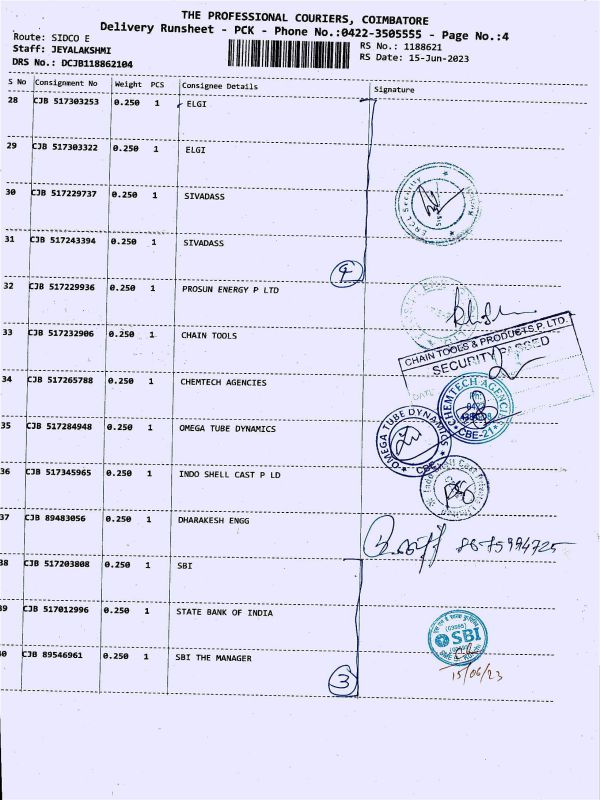 THE PROFESSIONAL COURIERS, COIMBATORE
Delivery Runsheet - PCK - Phone No.:0422-3505555 - Page No.:4
Route: SIDCO E
RS No.: 1188621
Staff: JEYALAKSHMI
RS Date: 15-Jun-2023
DRS No.: DCJB118862104
S No Consignment No Weight PCS Consignee Details Signature
28 CJB 517303253 0.250 1 ELGI
29 CJB 517303322 0.250 1 ELGI
30 CJB 517229737 0.250 1 SIVADASS
Security
31 CJB 517243394 0.250 1 SIVADASS
4
32 CJB 517229936 0.250 1 PROSUN ENERGY P LTD
33 CJB 517232906 0.250 1 CHAIN TOOLS
CHAIN TOOLS & PRODUCTS P. LTD.
SECURITY PASSED
DATE
34 CJB 517265788 0.250 1 CHEMTECH AGENCIES
CHEMTECH AGENCIES
Ph:
CBE-21
35 CJB 517284948 0.250 1 OMEGA TUBE DYNAMICS
OMEGA TUBE DYNAMICS
CBE
36 CJB 517345965 0.250 1 INDO SHELL CAST P LD
Indo Shell Cast Private Limited
37 CJB 89483056 0.250 1 DHARAKESH ENGG
8675994725
38 CJB 517203808 0.250 1 SBI
39 CJB 517012996 0.250 1 STATE BANK OF INDIA
SBI
40 CJB 89546961 0.250 1 SBI THE MANAGER
15/06/23
3